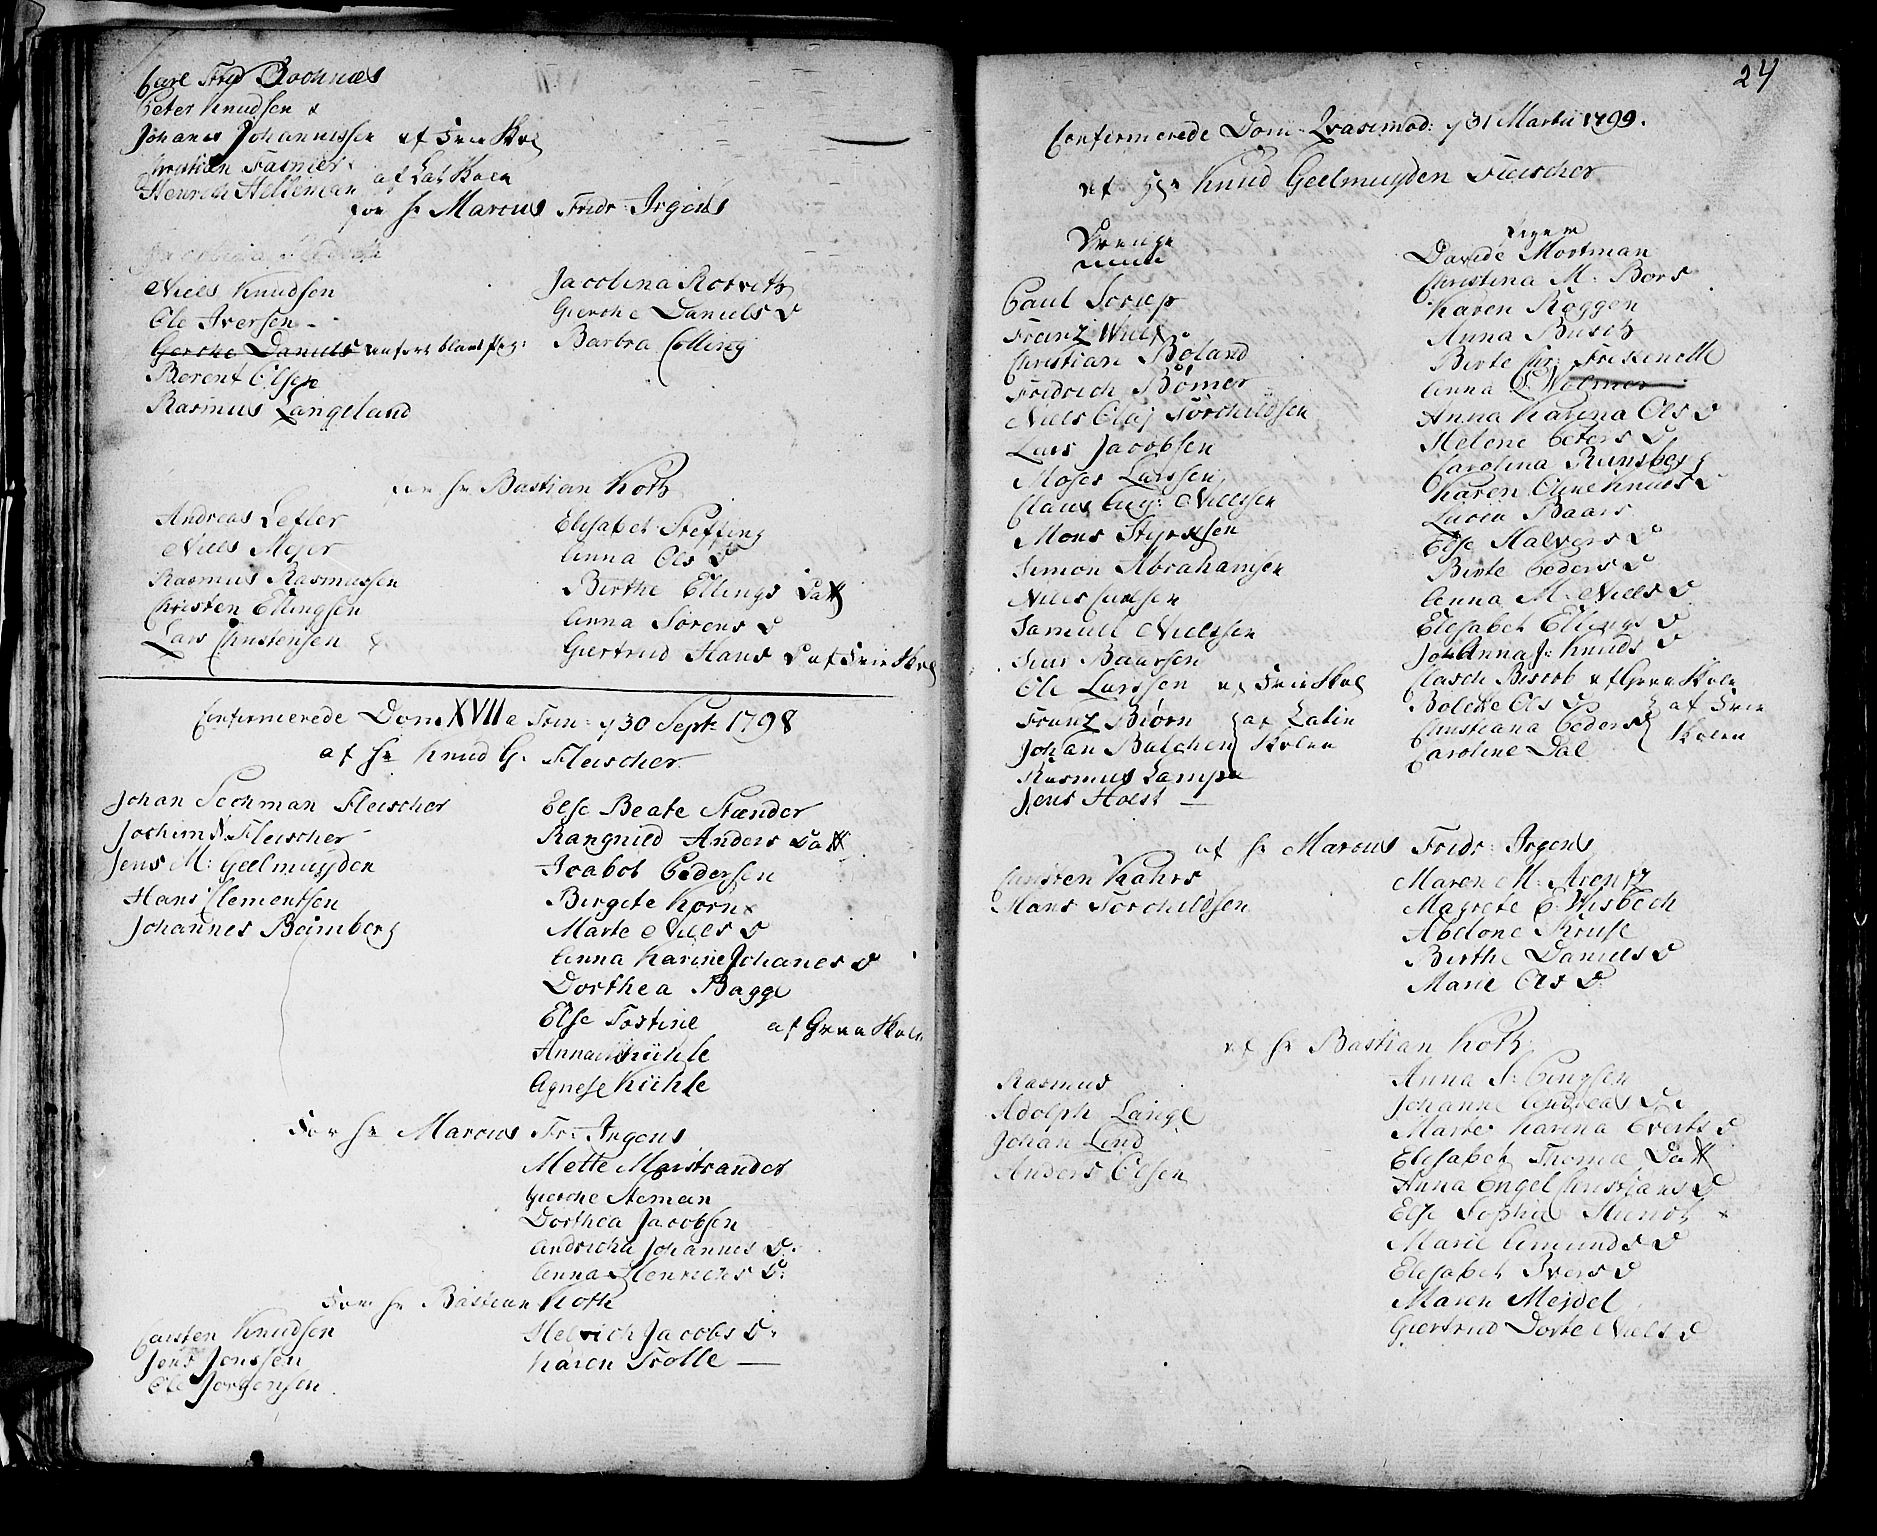 Carl Frid Bochnæs
Peter Knudsen
Johanes Johannessen af Frie Skol
Christian Fasmer
Henrich Hilleman af Lat Skoen
for Hr Marcus Fridr: Irgens
Niels Knudsen
Ole Iversen
Gerche Daniels anført blant pig:
Berent Olsen
Rasmus Langeland
Jacobina Rotvith
Gierche Daniels D
Barbra Colling
for Hr Bastian Koth
Andreas Lefler
Niels Mejer
Rasmus Rasmussen
Christen Ellingsen
Lars Christensen
Elisabet Steffing
Anna Ols D
Birthe Ellings Datt
Anna Sørens D
Giertrud Hans D af Frie Skol
Confirmerede Dom XVII a Trin: d 30 Sept: 1798
af Hr Knud G. Fleischer
Johan Sechman Fleischer
Jochim Fleischer
Jens M: Geelmuyden
Hans Clementsen
Johannes Bamberg
Else Beate Stænder
Rangnild Anders Datt
Icabot Pedersen
Birgete Korn
Marte Niels D
Anna Karine Johanes D
Dorthea Bagge
Else Tostine af Gren Skolen
Anna Kühle
Agnese Kühle
For Hr Marcus Fr: Irgens
Mette Marstrander
Gierche Neman
Dorthea Jacobsen
Andricka Johannis D.
Anna Henrichs D:
For Hr Bastian Koth
Carsten Knudsen
Jens Jenssen
Ole Jørgensen
Helvich Jacobs D.
Karen Trolle
24
Confirmerede Dom: Qvasimod: d 31 Martii 1799.
af Hr Knud Geelmuyden Fleischer
Drenge
Paul Sorup
Frantz Wiels
Christian Boland
Fridrich Bømer
Niels Olaj Torchildsen
Lars Jacobsen
Moses Larssen
Claus Aug: Nielsen
Mons Styrxsen
Simon Abrahamsen
Niels Carlsen
Samuel Nielssen
Jens Baarsen
Ole Larssen af Frie Skol
Frantz Biørn af Latin
Johan Balchen Skolen
Rasmus Lampe
Jens Holst
Piger
Davide Mortman
Christina M: Bors
Karen Roggen
Anna Busch
Birte Chr: Friskenell
Anna C. Wolmer
Anna Karina Ols D
Helene Peters D
Carolina Runsberg
Karen Oline Knuds D
Lucia Baars
Else Halvers D
Birte Peders D
Anna M. Niels D
Elisabet Ellings D
Johanna J: Knuds D
Clasch Biscob af Gren Skolen
Bolette Ols D af Frie
Christiana Peders D Skolen
Caroline Dal
af Hr Marcus Fridr: Irgens
Christen Kahrs
Hans Torchildsen
Maren M: Arentz
Magrete E. Wisbech
Abelone Kruse
Birthe Daniels D
Marie Ols D.
af Hr Bastian Koth
Rasmus
Adolph Lange
Johan Lind
Anders Olsen
Anna S: Pingsen
Johanne Andreas D
Marte Karina Everts D
Elisabeth Thomæ Datt
Anna Engel Christians D
Else Sophie Hundt
Marie Amunds D
Elisabet Ivers D
Maren Mejdel
Giertrud Dorte Niels D